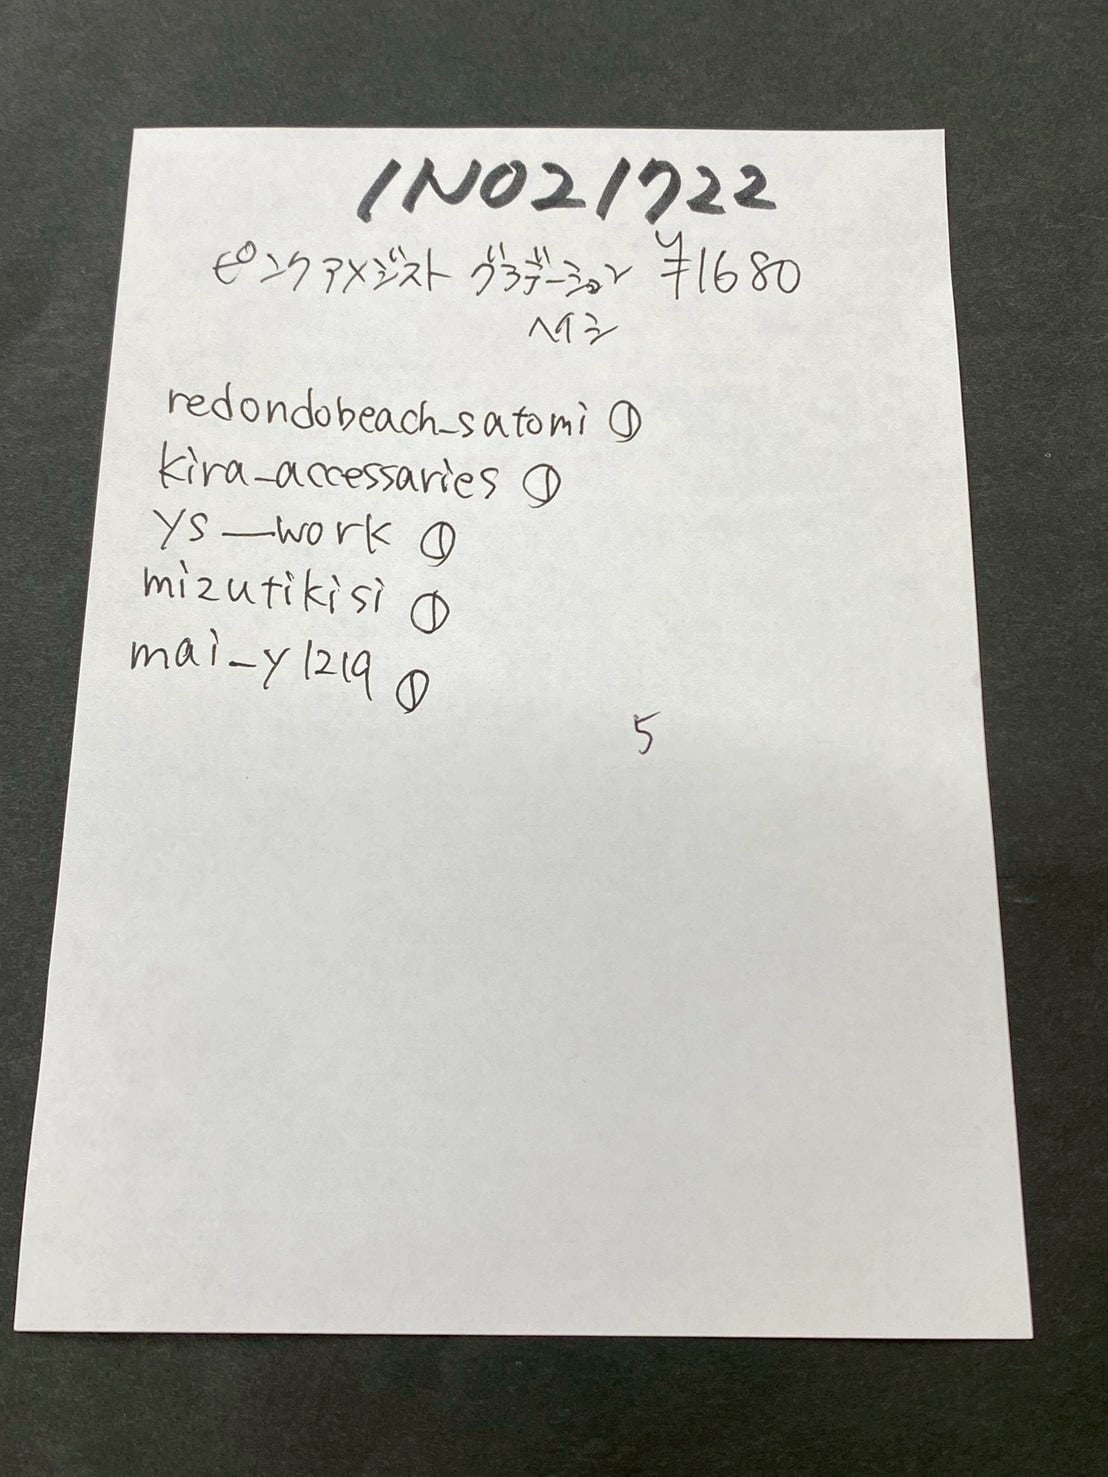 INO21722
ピンクアメジスト グラデーション ¥1680
ヘイシ
redondobeach_satomi ①
kira_accessaries ①
ys_work ①
mizutikisi ①
mai_y1219 ①
5